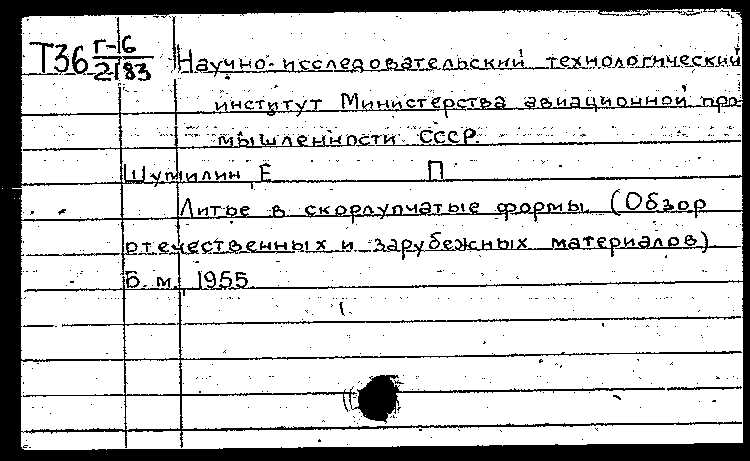 Т36 Г-6
2183
Научно-исследовательский технологический
институт Министерства авиационной про-
мышленности СССР.
Шумилин, Е П
Литье в скорлупчатые формы. (Обзор
отечественных и зарубежных материалов).
Б. м., 1955.